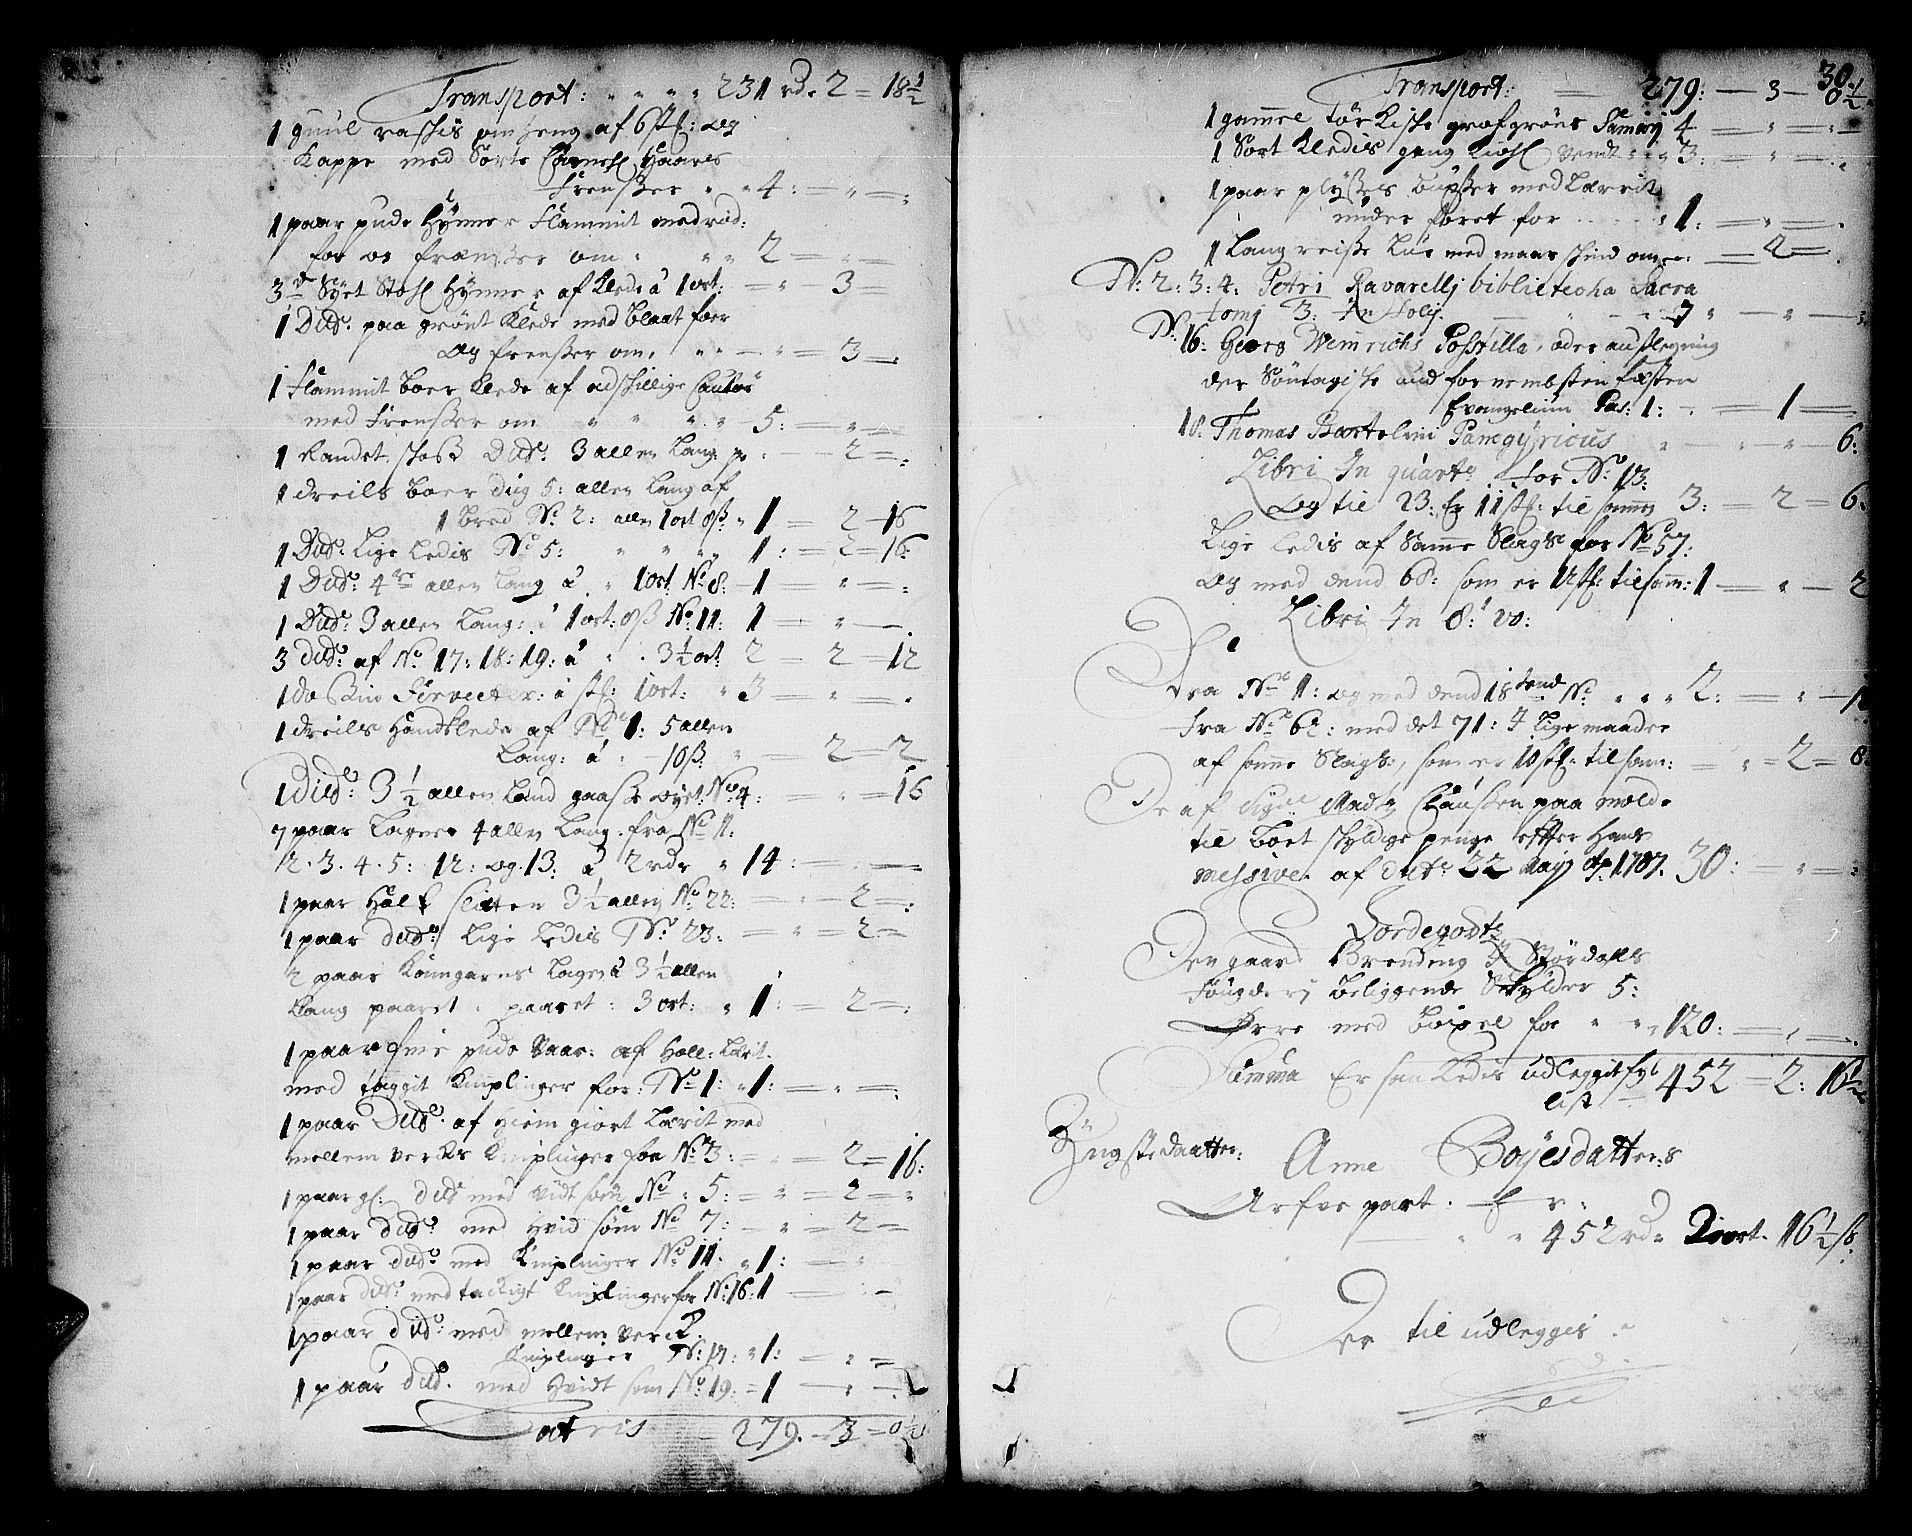 Transport: 231 rd. 2 = 18½
1 guul raskis omheng af 6 st: og
Kappe med Sorte Camehl Haars
Frenßer 4: = " =
1 paar pude Hynner Flammit med rød:
for og frenßer om 2 = " =
3de Syet Stohl Hynner af Klede á 1 ort: = " = 3 =
1 Dito: paa grønt Klede med blaat foer
og frenßer om. = 3 =
1 Flammit boer Klede af adskillige Couleur
med Frenßer om 5: = " =
1 Randet Dito: 3 allen Lang 2 =
1 dreils boer dug 5: allen Lang af
1 bred No 2: allen 1 ort 8ß 1 = 2 = 16
1 Dito: Lige Ledis No 5: 1: = 2 = 16
1 Dito: 4re allen lang á 1 ort No 8: 1 = " =
1 Dito: 3 allen Lang: á 1 ort: 8ß No 11: 1 = " =
3 dito: af No 17: 18: 19: á 3½ ort 2 = 2 = 12
1 do ßin Servietter: á st: 1 ort: 3 = " =
1 dreils Handklede af No 1: 5 allen
Lang: á 10ß. = 2 = 2
1 Dito: 3½ allen Land gaaße øyet: No 4: = " = 16
7 paar Lagen 4 allen Lang. fra No 1:
2. 3. 4. 5: 12: og. 13: á 2 rdr 14: = =
1 paar Half slitten 3½ allen No 22: = 2 =
1 paar dito: lige Ledis No 23: = " = 2 =
2 paar Lagen á 3½ allen
Lang paaret paaret: 3 ort: 1: = 2 =
1 paar fine pude Vaar: af Holl: Lærit.
med taggit Kniplinger for: No 1: 1: = " =
1 paar Dito: af Hiem giort Lærit med
mellem Vercks Kniplinger for No 3: = 2 = 16:
1 paar gl: dito med Vidt søm No 5: = " = 2 = "
1 paar dito: med Hvid søm No 7: = " = 2 =
1 paar dito: med Kniplinger No 11: 1: =
1 paar dito: med tackigt Kniplinger for No 16: 1 =
1 paar dito: med mellem verck
Kniplinger No: 17: 1: = " =
1 paar dito: med Hvidt søm No 19: = 1 = " =
Lateris 279. = 3 = 0½
30
Transport: 279: = 3 = 0½
1 gammel tørkiske grofgrøns 4 = " =
1 Sort Kledis gang Kiohl vendt 3: = " =
1 paar plysses buxßer med Lærrit
under foret for 1: = " =
1 Lang reiße Lue med maar skind om = 2 =
No: 2: 3: 4: Petri Ravarelly bibliotecha Sacra
tomj 3: In folij. 7 " = " =
No 16: Georg Weinrichs Postilla, oder außlegung
der Sontagische und fornembsten festen
Evangelium Pas: 1: = 1 =
18: Thomas Bartolini Panegyricus " = " = 6:
Libri In quarto for No 13:
og til 23: Er 11 st: til sammen 3: = 2 = 6:
Lige ledis af samme Slags for No 57:
og med dend 68: som er 12 st: til sam: 1 = " = 2
Libri In 8: vo:
Fra No 1: og med dend 18tend No 2: = " =
Fra No 62: med det 71: I lige maader
af samme Slags, som er 10 st: til sam: = " = 2 = 8:
De af Madtz Claußen paa Molde
til bort skyldige penge effter Hans
messive af dato 22 May Ao 1707. 30: = " =
Jordegodtz
Den gaard Brendeng I Størdals
fougderj beliggende Schylder 5:
Øere med boxel for 120: = " =
Summa Er saa Ledis udleggit fyl
list 452 = 2: 16½
Yngste daatter: Anne Boyesdatters
Arfve part. Er:
452 rd. 2 ort. 16½ ß.
Der til udlegges